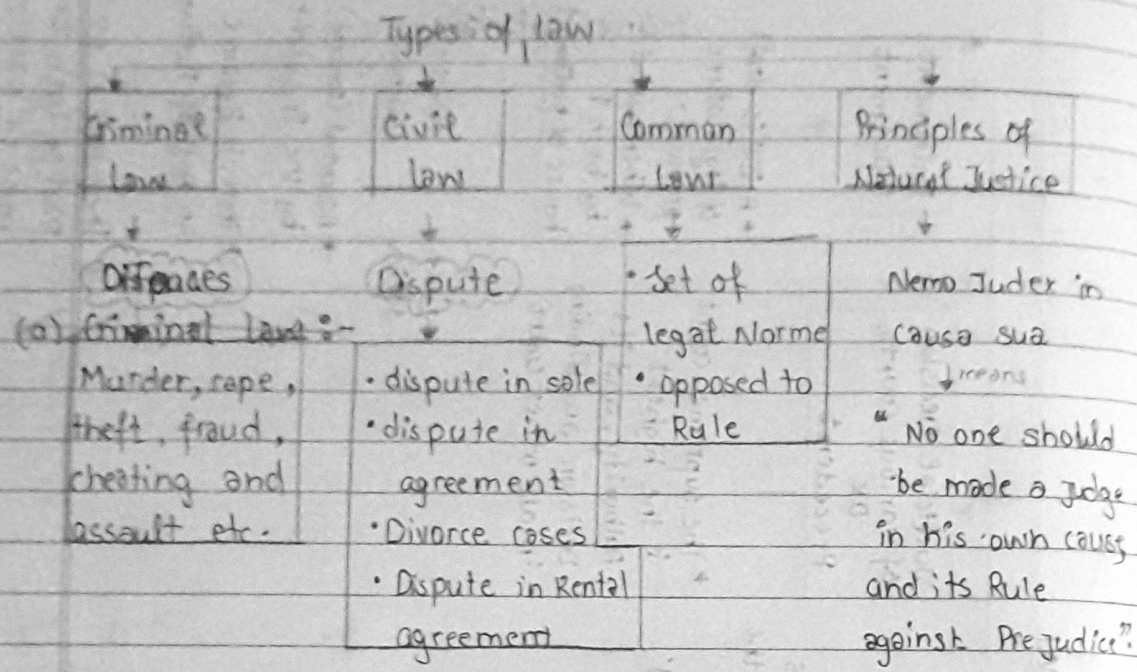 Types of law
Criminal
law
Civil
law
Common
law
Principles of
Natural Justice
Offences
(a) Criminal law :-
Murder, rape,
theft, fraud,
cheating and
assault etc.
Dispute
• dispute in sale
• dispute in
agreement
• Divorce cases
• Dispute in Rental
agreement
• Set of
legal Norme
• opposed to
Rule
Nemo Juder in
causa sua
means
" No one should
be made a judge
in his own cause,
and its Rule
against Prejudice".